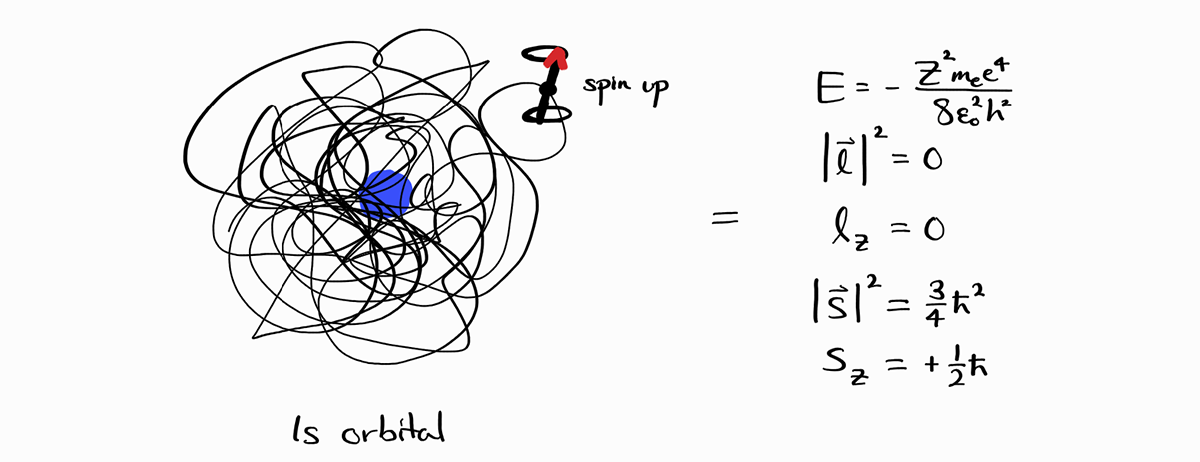 spin up
1s orbital
=
E = - Z²mₑe⁴ / 8ε₀²h²
|l⃗|² = 0
l_z = 0
|s⃗|² = 3/4 ħ²
s_z = + 1/2 ħ